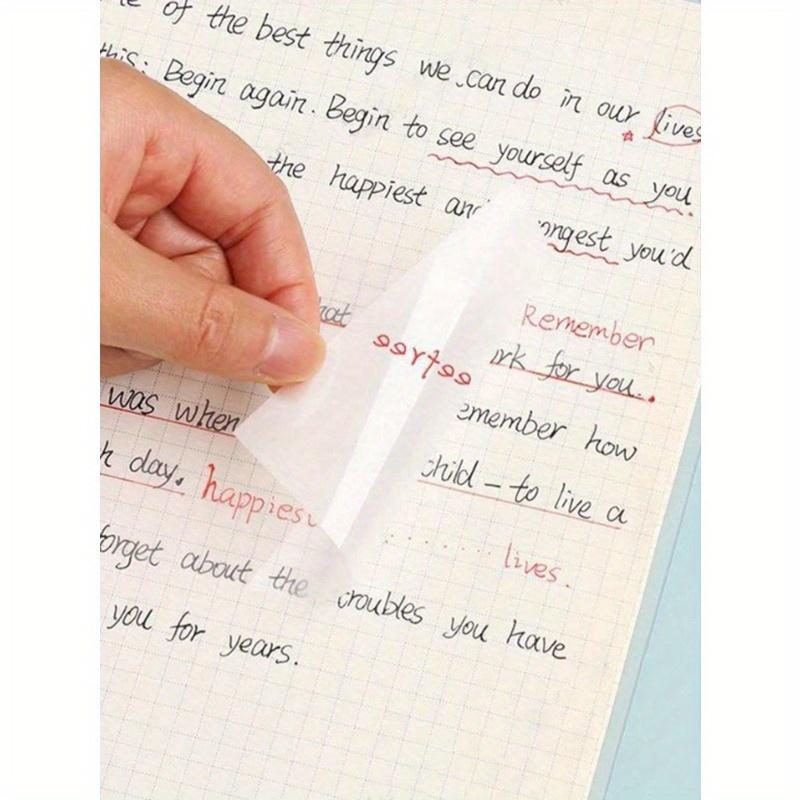 of the best things we can do in our lives
this: Begin again. Begin to see yourself as you
the happiest and ongest you'd
hat Remember
rk for you..
was when emember how
h day. child – to live a
happiest ........ lives.
forget about the troubles you have
you for years.